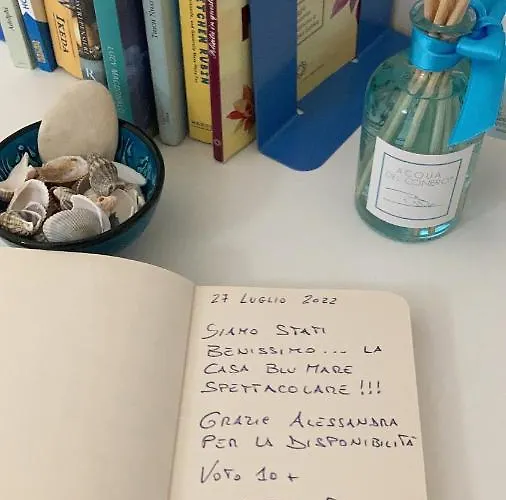 IKEDA
LUCY
KITCHEN
RUBIN
ACQUA
DEL CONERO
27 LUGLIO 2022
SIAMO STATI
BENISSIMO... LA
CASA BLU MARE
SPETTACOLARE!!!
GRAZIE ALESSANDRA
PER LA DISPONIBILITÀ
VOTO 10+